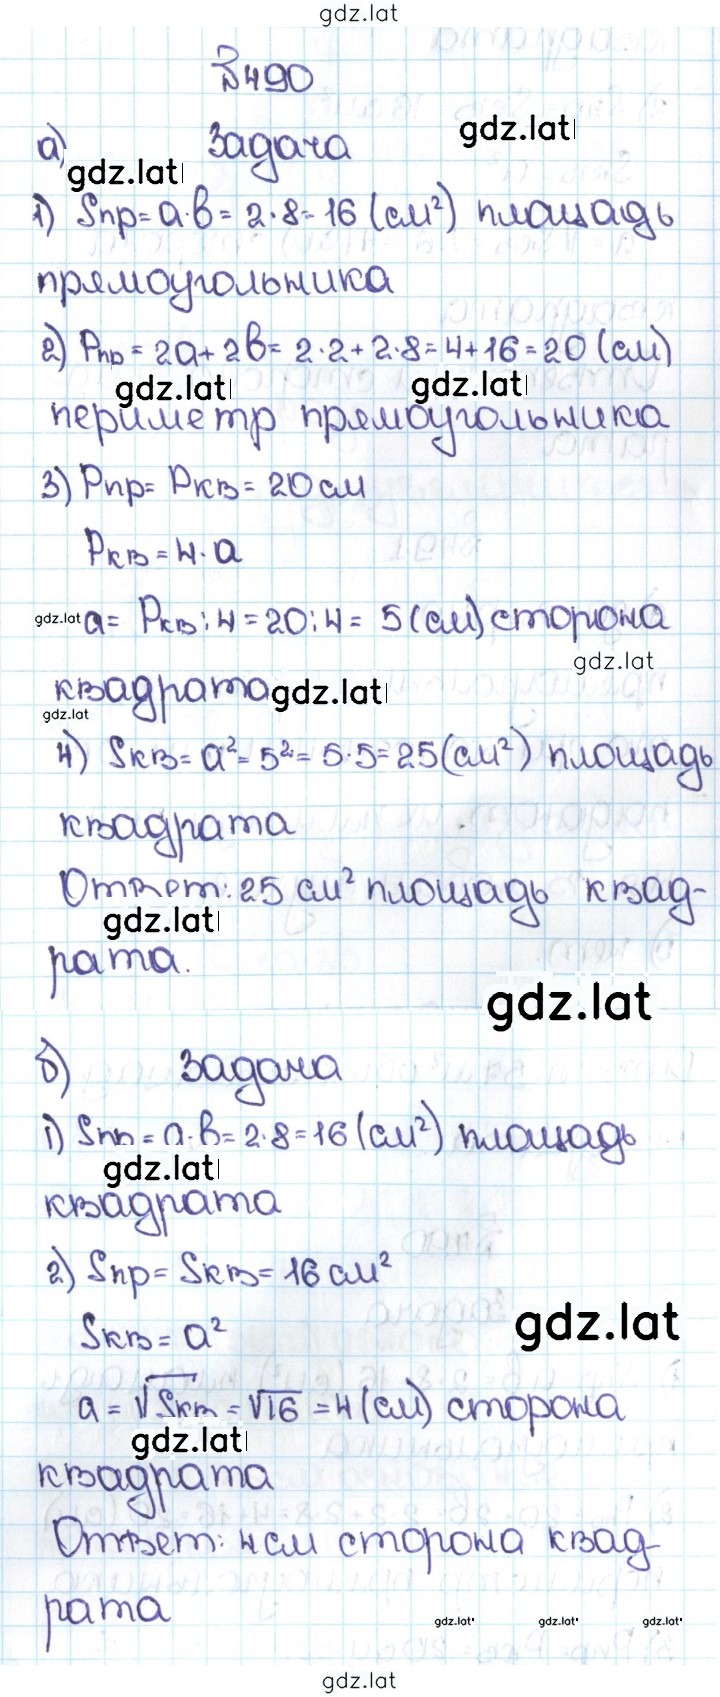 gdz.lat
№490
а) Задача gdz.lat
gdz.lat
1) Sпр= a·b= 2·8= 16 (см²) площадь
прямоугольника
2) Pпр= 2a+2b= 2·2+2·8=4+16=20 (см)
gdz.lat gdz.lat
периметр прямоугольника
3) Pпр= Pкв= 20см
Pкв=4·a
gdz.lat a= Pкв:4=20:4= 5(см) сторона
gdz.lat
квадрата gdz.lat
gdz.lat
4) Sкв= a²= 5²= 5·5=25(см²) площадь
квадрата
Ответ: 25 см² площадь квад-
gdz.lat
рата.
gdz.lat
б) Задача
1) Sпр= a·b= 2·8=16 (см²) площадь
gdz.lat
квадрата
2) Sпр= Sкв= 16 см²
gdz.lat
Sкв= a²
a= √Sкв = √16 =4(см) сторона
gdz.lat
квадрата
Ответ: 4см сторона квад-
рата
gdz.lat gdz.lat gdz.lat
gdz.lat